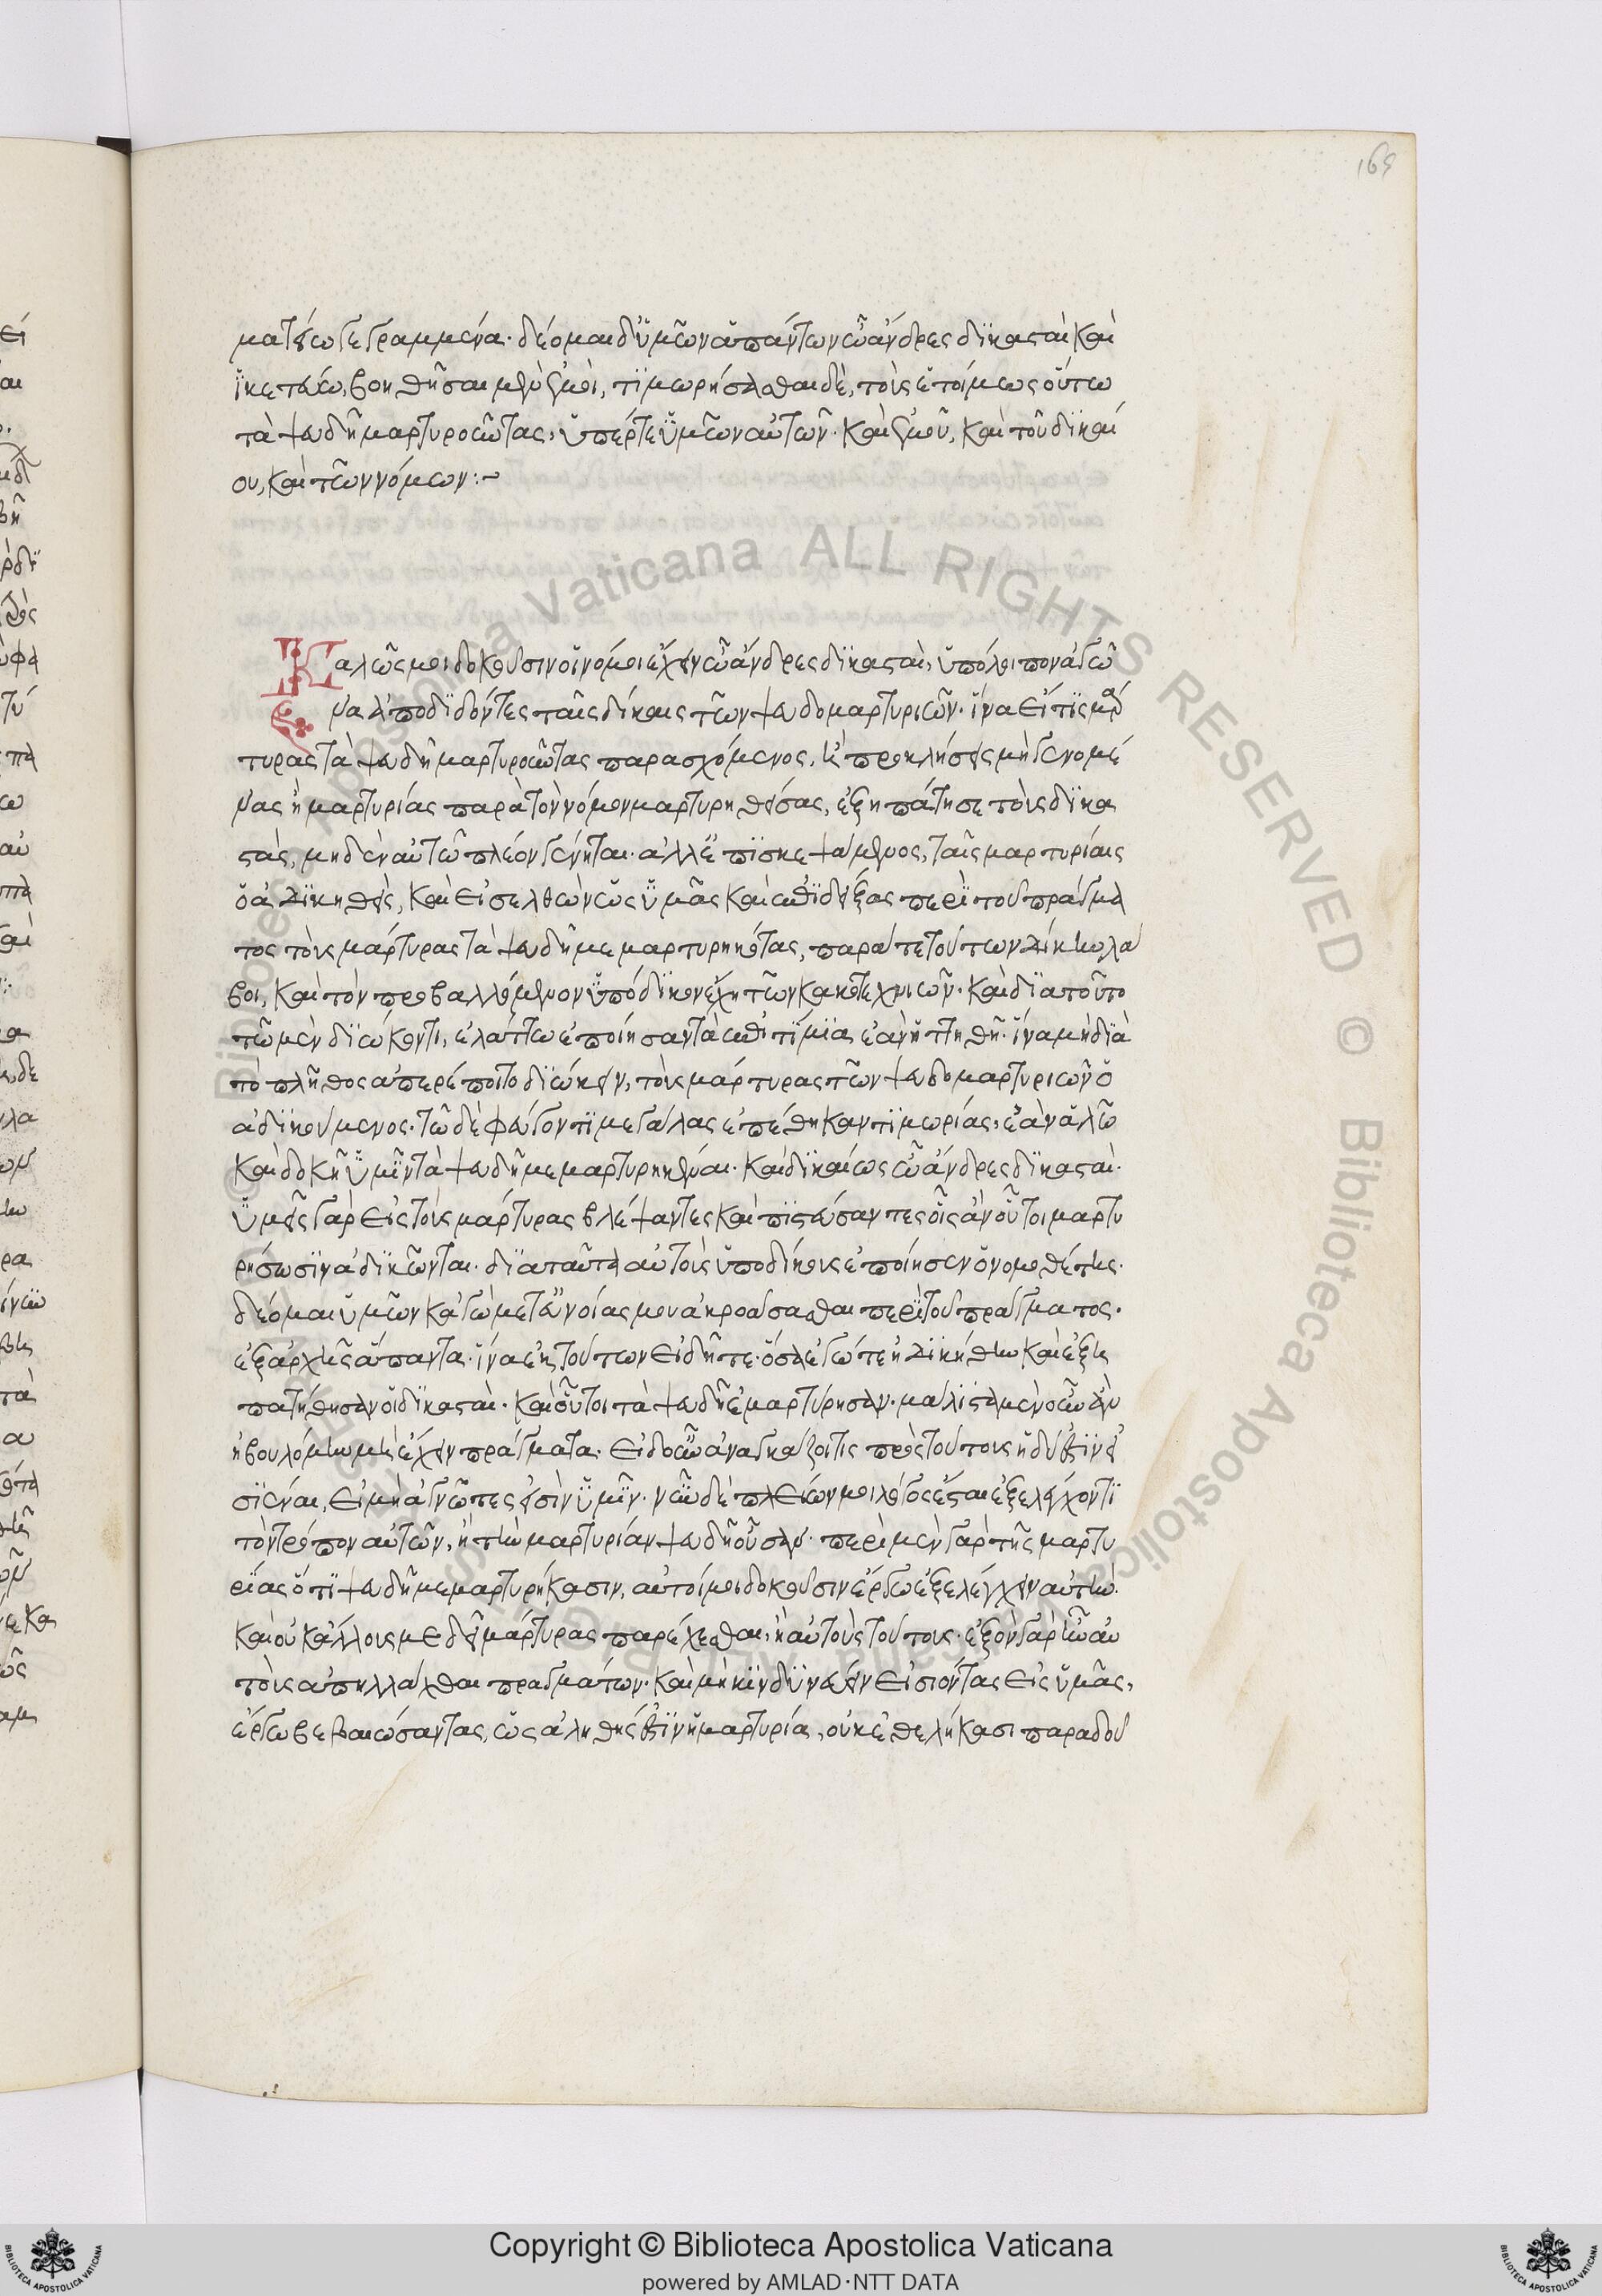 165
ματείω γεγραμμένα· δέομαι δ' ὑμῶν ἁπάντων ὦ ἄνδρες δικασταὶ καὶ
ἱκετεύω, βοηθῆσαι μὲν ἐμοὶ, τιμωρήσασθαι δὲ, τοὺς ἑτοίμως οὕτω
τὰ ψευδῆ μαρτυροῦντας, ὑπέρ τε ὑμῶν αὐτῶν· καὶ ἐμοῦ, καὶ τοῦ δικαί
ου, καὶ τῶν νόμων:~
Καλῶς μοι δοκοῦσιν οἱ νόμοι ἔχειν ὦ ἄνδρες δικασταὶ, ὑπόλοιπον ἀγῶ
να ἀποδιδόντες ταῖς δίκαις τῶν ψευδομαρτυριῶν· ἵνα εἴ τις μάρ
τυρας τὰ ψευδῆ μαρτυροῦντας παρασχόμενος, ἢ προκλήσεις μὴ γενομέ
νας ἢ μαρτυρίας παρὰ τὸν νόμον μαρτυρηθείσας, ἐξηπάτησε τοὺς δικα
στὰς, μηδὲν αὐτῶ πλέον γένηται· ἀλλ' ἐπισκεψάμενος, ταῖς μαρτυρίαις
ὁ ἀδικηθεὶς, καὶ εἰσελθὼν ὡς ὑμᾶς καὶ ἐπιδείξας περὶ τοῦ πράγμα
τος τοὺς μάρτυρας τὰ ψευδῆ μεμαρτυρηκότας, παρά τε τούτων δίκην λά
βοι, καὶ τὸν προβαλλόμενον ὑπόδικον ἔχη τῶν κακοτεχνιῶν· καὶ διὰ τοῦτο
τῶ μὲν διώκοντι, ἐλάττω ἐποίησαν τὰ ἐπιτίμια ἐὰν ἡττηθῆ· ἵνα μὴ διὰ
τὸ πλῆθος ἀπερέποιτο διώκειν, τοὺς μάρτυρας τῶν ψευδομαρτυριῶν ὁ
ἀδικούμενος· τῶ δὲ φεύγοντι μεγάλας ἐπέθηκαν τιμωρίας, ἐὰν ἁλῶ
καὶ δοκῆ ὑμῖν τὰ ψευδῆ μεμαρτυρηκέναι· καὶ δικαίως ὦ ἄνδρες δικασταί·
ὑμεῖς γὰρ εἰς τοὺς μάρτυρας βλέψαντες καὶ πιστεύσαντες οἷς ἂν οὗτοι μαρτυ
ρήσωσιν ἀδικῶνται· διὰ ταῦτα αὐτοὺς ὑποδίκους ἐποίησεν ὁ νομοθέτης·
δέομαι ὑμῶν κἀγὼ μετ' εὐνοίας μου ἀκροάσασθαι περὶ τοῦ πράγματος·
ἐξ ἀρχῆς ἅπαντα· ἵνα ἐκ τούτων εἰδῆτε· ὅσα ἐγώ τε ἠδικήθην καὶ ἐξη
πατήθησαν οἱ δικασταί· καὶ οὗτοι τὰ ψευδῆ ἐμαρτύρησαν· μάλιστα μὲν οὖν ἂν
ἠβουλόμην μὴ ἔχειν πράγματα· εἰ δ' οὖν ἀναγκάζοι τις πρὸς τούτους ἡδύ ἐστιν εἰ
σιέναι, οἳ μὴ ἀγνῶτες εἰσὶν ὑμῖν· νῦν δὲ πλείων μοι λόγος ἔσται ἐξελέγχοντι
τὸν τρόπον αὐτῶν, ἢ τὴν μαρτυρίαν ψευδῆ οὖσαν· περὶ μὲν γὰρ τῆς μαρτυ
ρίας ὅτι ψευδῆ μεμαρτυρήκασιν, αὐτοί μοι δοκοῦσιν ἔργω ἐξελέγχειν αὐτήν·
καὶ οὐκ ἄλλους με δεῖ μάρτυρας παρέχεσθαι, ἢ αὐτοὺς τούτους· ἐξὸν γὰρ ἦν αὐ
τοὺς ἀπηλλάχθαι πραγμάτων· καὶ μὴ κινδυνεύειν εἰσιόντας εἰς ὑμᾶς,
ἔργω βεβαιώσαντας, ὡς ἀληθής ἐστιν ἡ μαρτυρία, οὐκ ἐθελήκασι παραδοῦ
Copyright © Biblioteca Apostolica Vaticana
powered by AMLAD·NTT DATA